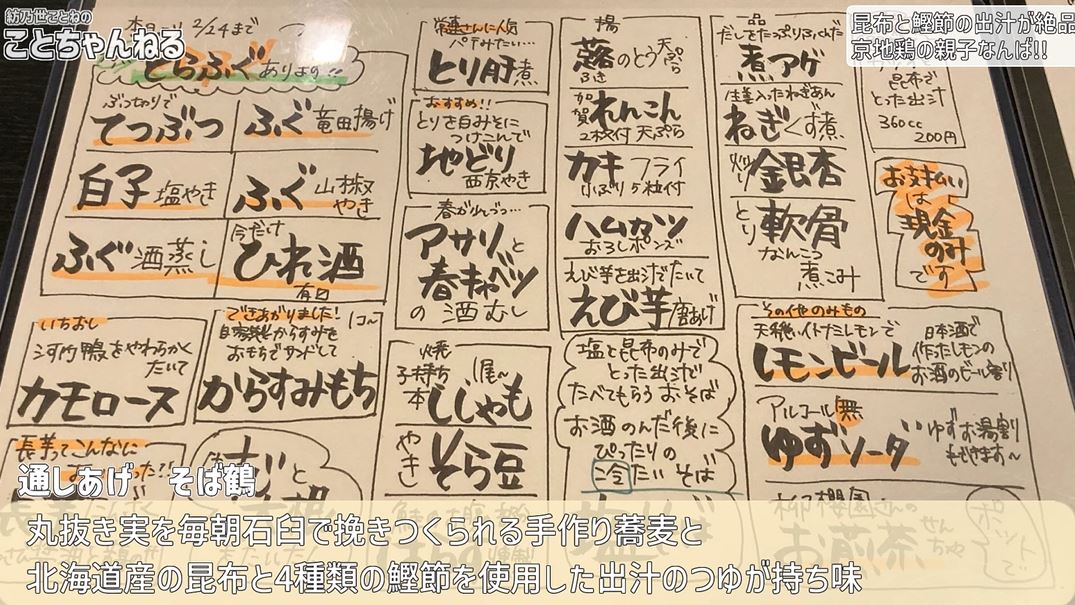 紡乃世ことねの
ことちゃんねる
昆布と鰹節の出汁が絶品
京地鶏の親子なんば!!
本日〜 2/24まで
とらふぐあります
ぶっちりで
てつぶつ
ふぐ竜田揚げ
白子塩やき
ふぐ山椒やき
ふぐ酒蒸し
今だけ
ひれ酒
有〼
いちおし
河内鴨をやわらかく
たいて
カモロース
できあがりました!
自家製からすみを
おもちでサンドして
からすみもち
長芋ってこんなに
常連さんに人気
パテみたい…
とり肝煮
おすすめ!!
とりを白みそに
つけこんで
地どり
西京やき
アサリと
春キャベツ
の酒むし
焼
子持ち
本ししゃも
やき そら豆
揚
ふきのとう天ぷら
加賀れんこん
2枚付 天ぷら
カキフライ
小ぶり5粒付
ハムカツ
おろしポンズ
えび芋を出汁でたいて
えび芋唐あげ
塩と昆布のみで
とった出汁で
たべてもらうおそば
お酒のんだ後に
ぴったりの
冷たいそば
だしをたっぷりふくんだ
煮アゲ
生姜入ったねぎあん
ねぎくず煮
煎り銀杏
とり軟骨
なんこつ
煮こみ
昆布で
とった出汁
360cc
200円
お支払い
は
現金
のみ
です
その他のみもの
レモンビール
日本酒で
作ったレモンの
お酒のビール割り
アルコール無
ゆずソーダ
ゆずお湯割
もできます〜
柳桜園さんの
お煎茶
せんちゃ
ポットで
通しあげ そば鶴
丸抜き実を毎朝石臼で挽きつくられる手作り蕎麦と
北海道産の昆布と4種類の鰹節を使用した出汁のつゆが持ち味